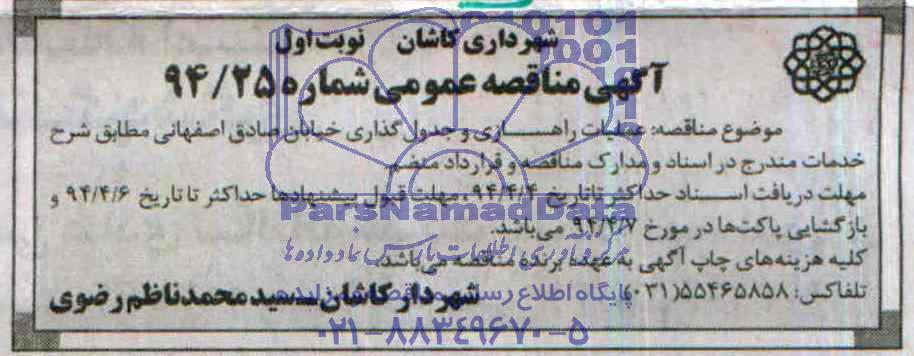 شهرداری کاشان نوبت اول
آگهی مناقصه عمومی شماره ۹۴/۲۵
موضوع مناقصه: عملیات راهسازی و جدول گذاری خیابان صادق اصفهانی مطابق شرح
خدمات مندرج در اسناد و مدارک مناقصه و قرارداد منضم.
مهلت دریافت اسناد حداکثر تا تاریخ ۹۴/۴/۴، مهلت قبول پیشنهادها حداکثر تا تاریخ ۹۴/۴/۶ و
بازگشایی پاکت‌ها در مورخ ۹۴/۴/۷ می‌باشد.
کلیه هزینه‌های چاپ آگهی به عهده برنده مناقصه می‌باشد.
تلفاکس: ۵۵۴۶۵۸۵۸(۰۳۱)
شهردار کاشان_سید محمد ناظم رضوی
ParsNamadData
مرکز فرآوری اطلاعات پارس نماد داده‌ها
پایگاه اطلاع رسانی
۰۲۱-۸۸۳۴۹۶۷۰-۵